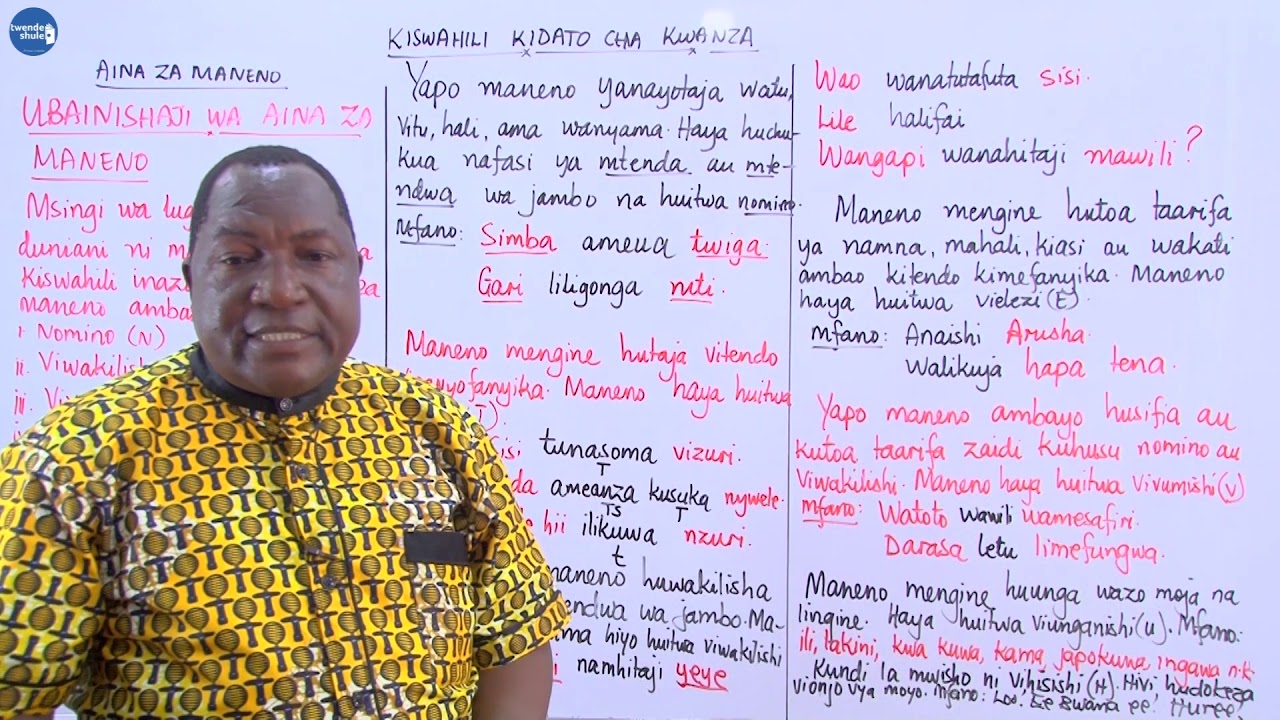 twende
shule
KISWAHILI KIDATO CHA KWANZA
AINA ZA MANENO
UBAINISHAJI WA AINA ZA
MANENO
Msingi wa
duniani ni
Kiswahili
maneno
i. Nomino (N)
ii.
iii.
Yapo maneno yanayotaja watu,
vitu, hali, ama wanyama. Haya huchu-
kua nafasi ya mtenda au mte-
ndwa wa jambo na huitwa nomino.
Mfano: Simba ameua twiga.
Gari liligonga mti.
Maneno mengine hutaja vitendo
Maneno haya huitwa
tunasoma vizuri.
T
ameanza kusuka nywele.
TS T
hii ilikuwa nzuri.
t
maneno huwakilisha
wa jambo. Ma-
hiyo huitwa viwakilishi
namhitaji yeye
Wao wanatutafuta sisi.
Lile halifai
Wangapi wanahitaji mawili?
Maneno mengine hutoa taarifa
ya namna, mahali, kiasi au wakati
ambao kitendo kimefanyika. Maneno
haya huitwa vielezi (E).
Mfano: Anaishi Arusha.
Walikuja hapa tena.
Yapo maneno ambayo husifia au
kutoa taarifa zaidi kuhusu nomino au
viwakilishi. Maneno haya huitwa vivumishi (V)
Mfano: Watoto wawili wamesafiri.
Darasa letu limefungwa.
Maneno mengine huunga wazo moja na
lingine. Haya huitwa viunganishi (U). Mfano:
ili, lakini, kwa kuwa, kama, japokuwa, ingawa n.k.
Kundi la mwisho ni vihisishi (H). Hivi hudokeza
vionjo vya moyo. Mfano: Loo! Ee Bwana ee! Huree!